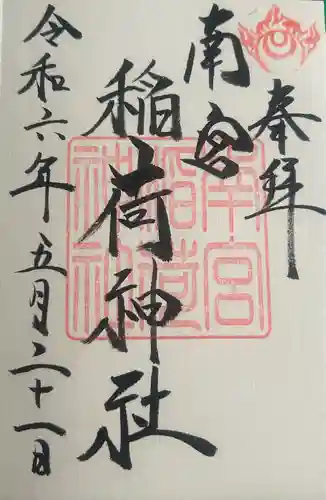 奉拝
南宮
稲荷神社
令和六年五月二十一日
南宮
稲荷
神社